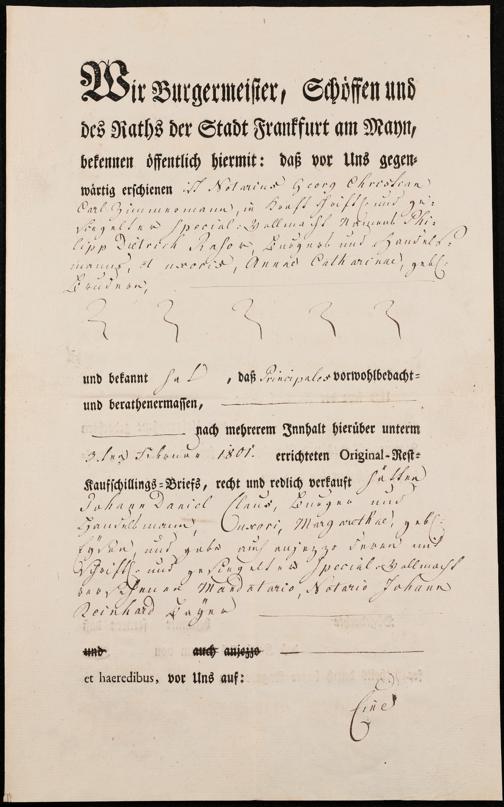 Wir Burgermeister, Schöffen und
des Raths der Stadt Frankfurt am Mayn,
bekennen öffentlich hiermit: daß vor Uns gegen-
wärtig erschienen ist Notarius Georg Christian
Carl Zimmermann, in Krafft schrifft- und ge-
siegelter Special-Vollmacht Namens Phi-
lipp Dietrich Rasor, Burgers und Handels-
manns, et uxoris, Annae Catharinae, gebh.
Brudern,
und bekannt hat, daß Principales vorwohlbedacht-
und berathenermassen,
nach mehrerem Innhalt hierüber unterm
Februar 1801. errichteten Original-Rest-
Kaufschillings-Briefs, recht und redlich verkauft hätten
Johann Daniel Claus, Burger und
Handelsmann, Uxori, Margarethae, gebh.
und gebe auch anjezzo deren mit
Schrifft- und gesiegelter Special-Vollmacht
versehenen Mandatario, Notario Johann
Reinhard
und auch anjezzo
et haeredibus, vor Uns auf:
Eine